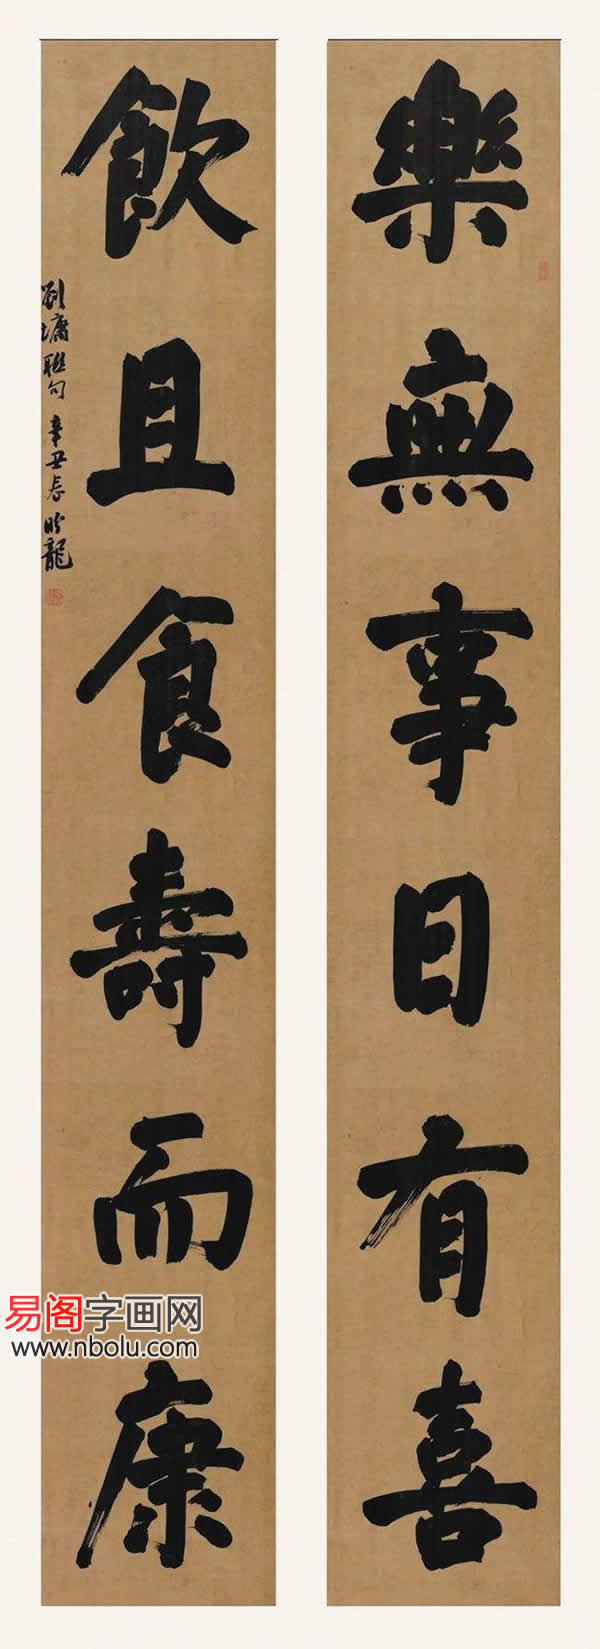 樂無事日有喜
飲且食壽而康
劉墉聯句 辛丑長 昤龍
易阁字画网
www.nbolu.com